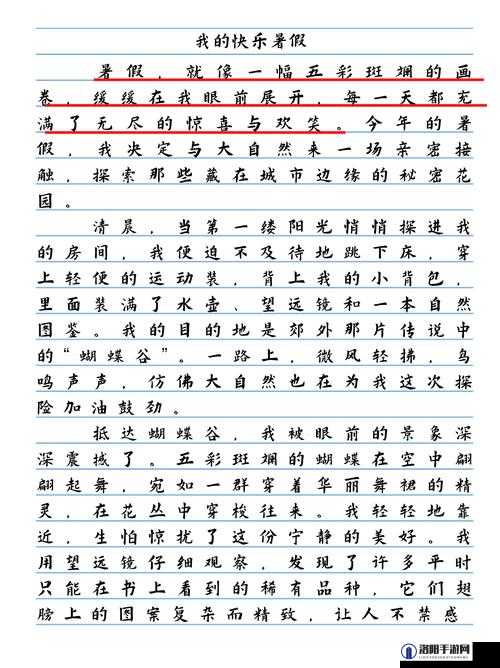 我的快乐暑假
暑假，就像一幅五彩斑斓的画
卷，缓缓在我眼前展开，每一天都充
满了无尽的惊喜与欢笑。今年的暑
假，我决定与大自然来一场亲密接
触，探索那些藏在城市边缘的秘密花
园。
清晨，当第一缕阳光悄悄探进我
的房间，我便迫不及待地跳下床，穿
上轻便的运动装，背上我的小背包，
里面装满了水壶、望远镜和一本自然
图鉴。我的目的地是郊外那片传说中
的“蝴蝶谷”。一路上，微风轻拂，鸟
鸣声声，仿佛大自然也在为我这次探
险加油鼓劲。
抵达蝴蝶谷，我被眼前的景象深
深震撼了。五彩斑斓的蝴蝶在空中翩
翩起舞，宛如一群穿着华丽舞裙的精
灵，在花丛中穿梭往来。我轻轻地靠
近，生怕惊扰了这份宁静的美好。我
用望远镜仔细观察，发现了许多平时
只能在书上看到的稀有品种，它们翅
膀上的图案复杂而精致，让人不禁感
洛阳手游网